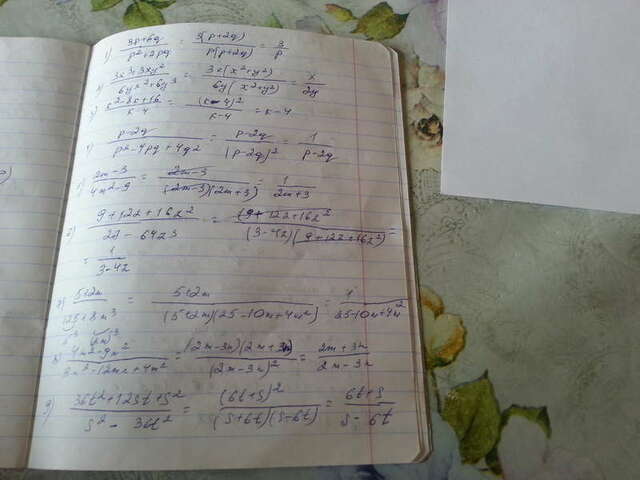 1) (3p+6q)/(p²+2pq) = 3(p+2q)/(p(p+2q)) = 3/p
2) (3x³+3xy²)/(6yx²+6y³) = 3x(x²+y²)/(6y(x²+y²)) = x/2y
3) (k²-8k+16)/(k-4) = (k-4)²/(k-4) = k-4
4) (p-2q)/(p²-4pq+4q²) = (p-2q)/(p-2q)² = 1/(p-2q)
5) (2m-3)/(4m²-9) = (2m-3)/((2m-3)(2m+3)) = 1/(2m+3)
6) (9+12z+16z²)/(27-64z³) = (9+12z+16z²)/((3-4z)(9+12z+16z²)) =
= 1/(3-4z)
7) (5+2m)/(125+8m³) = (5+2m)/((5+2m)(25-10m+4m²)) = 1/(25-10m+4m²)
5³ (2m)³
8) (4m²-9n²)/(9n²-12mn+4m²) = (2m-3n)(2m+3n)/(2m-3n)² = (2m+3n)/(2m-3n)
9) (36t²+12st+s²)/(s²-36t²) = (6t+s)²/((s+6t)(s+6t)) = (6t+s)/(s-6t)